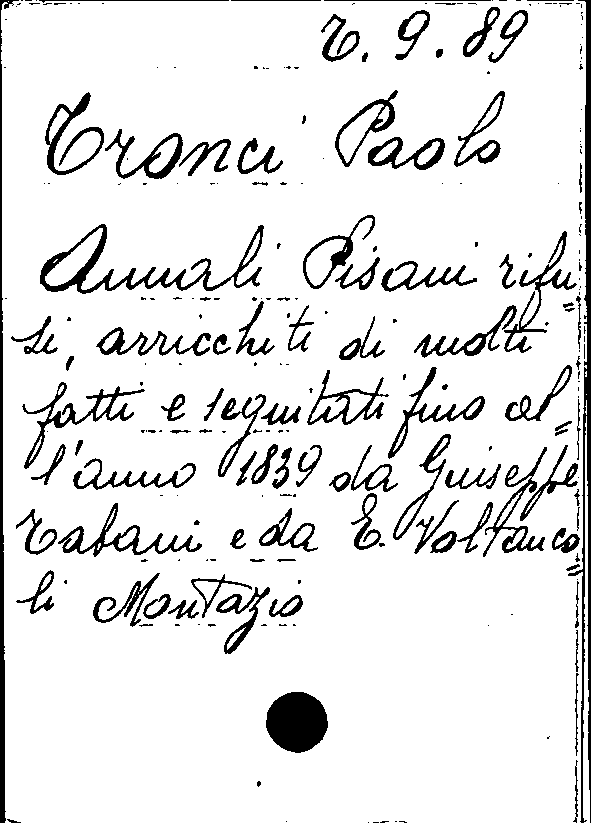 T. 9. 89
Tronci Paolo
Annali Pisani rifu=
si, arricchiti di molti
fatti e seguitati fino al=
l'anno 1839 da Giuseppe
Tabani e da E. Valtanco=
li Montazio